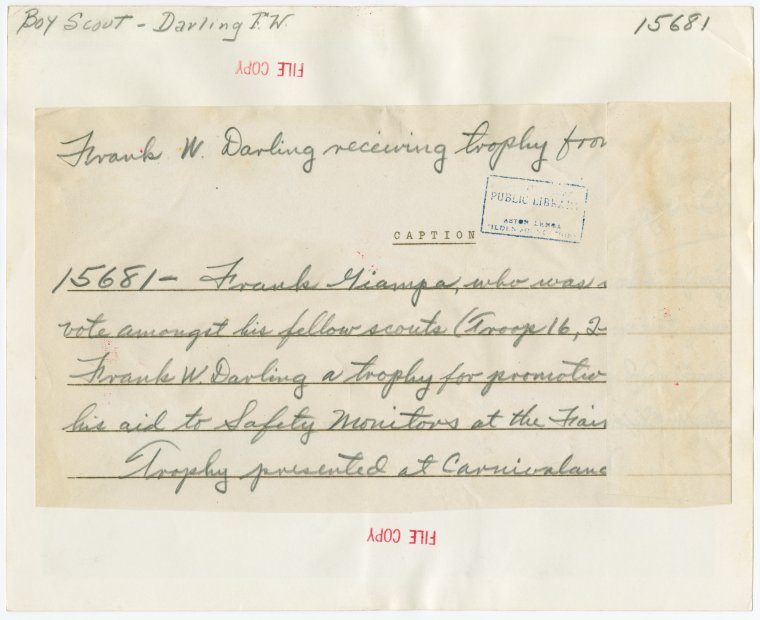 Boy Scout - Darling F.W.
15681
FILE COPY
Frank W. Darling receiving trophy from
PUBLIC LIBRARY
ASTOR LENOX
CAPTION
15681 - Frank Giampa, who was
vote amongst his fellow scouts (Troop 16, 2-
Frank W. Darling a trophy for promotio
his aid to Safety Monitors at the Fair
Trophy presented at Carnivaland
FILE COPY